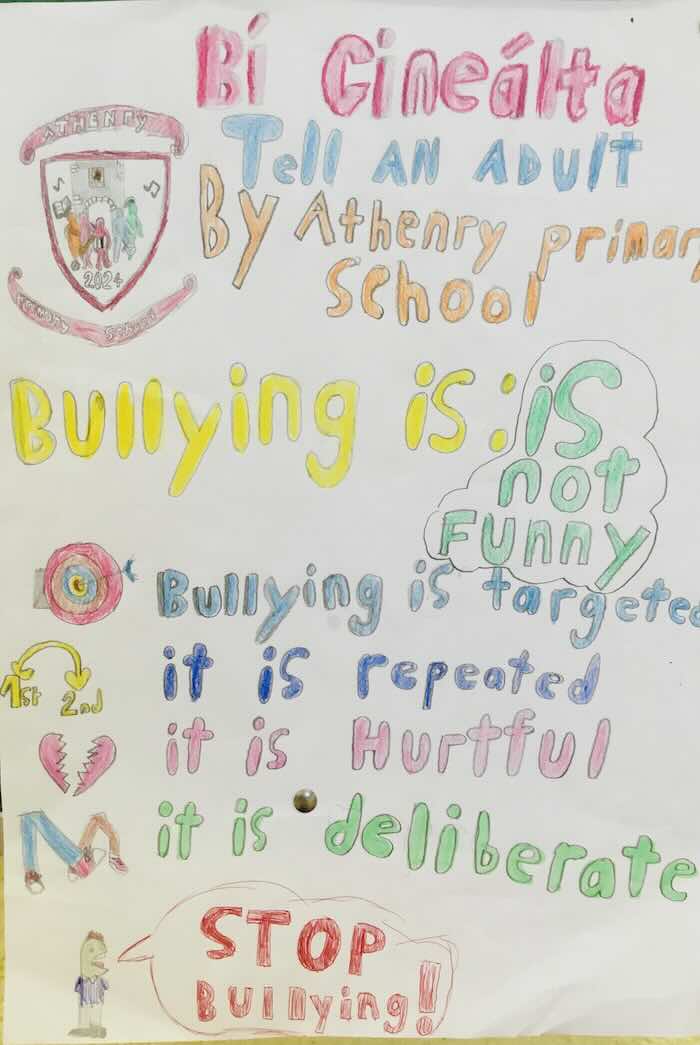 Bí Cineálta
Tell AN ADULT
By Athenry primary
School
ATHENRY
2024
PRIMARY SCHOOL
Bullying is: is
not
Funny
Bullying is targeted
it is repeated
1st 2nd
it is Hurtful
it is deliberate
STOP
Bullying!